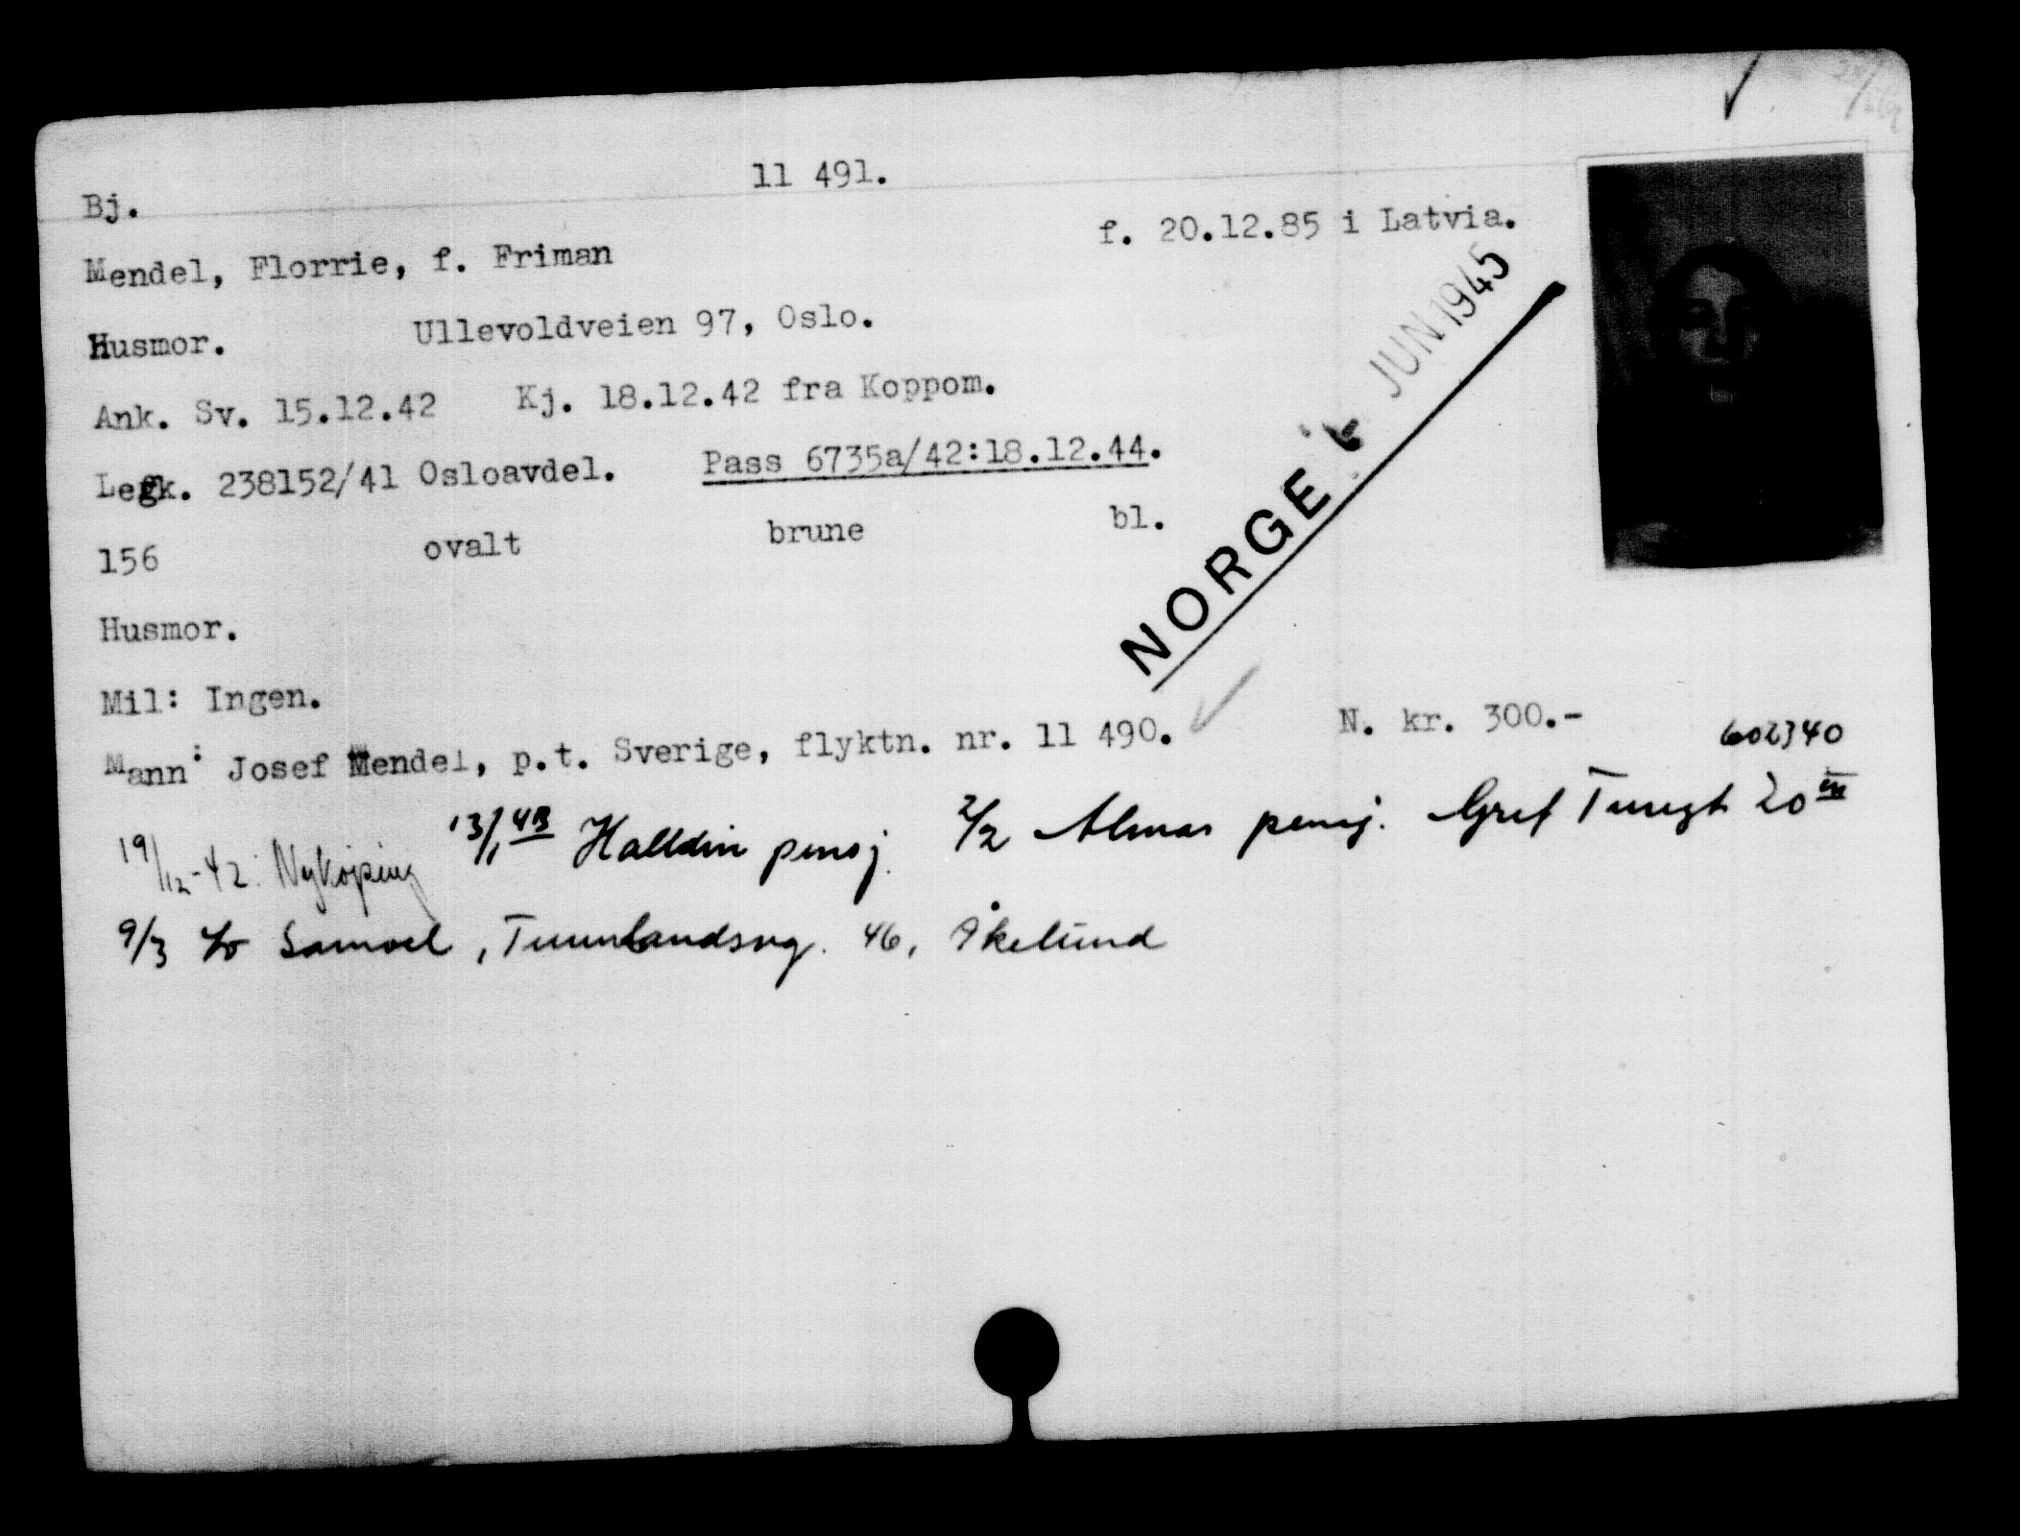 11 491.
Bj.
Mendel, Florrie, f. Friman f. 20.12.85 i Latvia.
Husmor. Ullevoldveien 97, Oslo.
Ank. Sv. 15.12.42 Kj. 18.12.42 fra Koppom.
Legk. 238152/41 Osloavdel. Pass 6735a/42:18.12.44.
156 ovalt brune bl.
NORGE JUN 1945
Husmor.
Mil: Ingen.
Mann: Josef Mendel, p.t. Sverige, flyktn. nr. 11 490. N. kr. 300.-
602340
19/12-42. Nyköping 13/1 43 Halldin pensj. 2/2 Almas pensj. Gref Turegt 20
9/3 c/o Samoel, Tunnlandsvg. 46, Åkelund